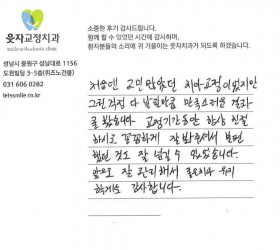 웃자교정치과
성남시 중원구 성남대로 1156
도원빌딩 3-5층(위즈노건물)
031 606 0282
letssmile.co.kr
소중한 후기 감사드립니다.
함께 할 수 있었던 시간에 감사하며,
환자분들의 소리에 귀 기울이는 웃자치과가 되도록 하겠습니다.
처음엔 고민 많았던 치아교정이었지만
그런 걱정 다 날릴만큼 만족스러운 결과
를 봤습니다 교정기간동안 항상 친절
하시고 꼼꼼하게 잘 봐주셔서 불편
했던 것도 잘 넘길 수 있었습니다.
앞으로 잘 관리해서
감사합니다.